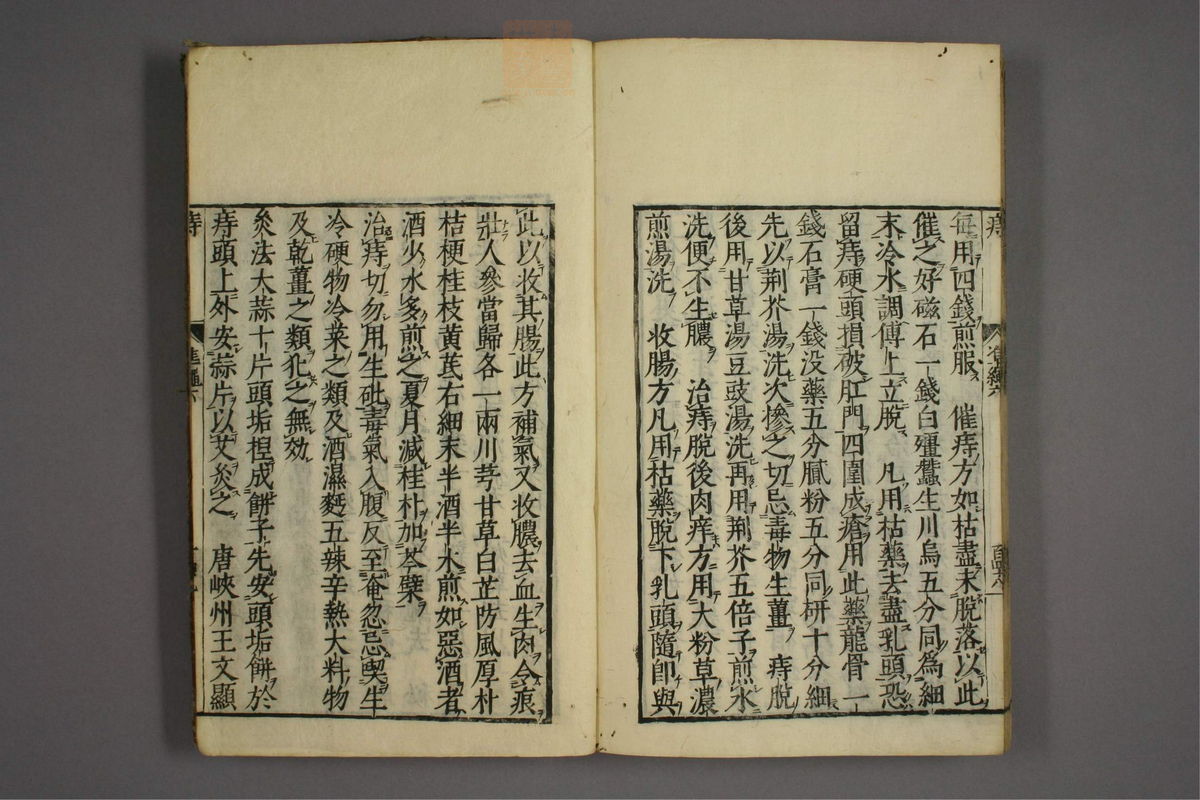 每用四錢煎服　催痔方如枯盡未脫落以此
催之好磁石一錢白殭蠶生川烏五分同為細
末冷水調傅上立脫　凡用枯藥去盡乳頭恐
留痔硬頭損破肛門四圍成瘡用此藥龍骨一
錢石膏一錢没藥五分膩粉五分同研十分細
先以荆芥湯洗次摻之切忌毒物生薑　痔脫
後用甘草湯豆豉湯洗再用荆芥五倍子煎水
洗便不生膿　治痔脫後肉痒方用大粉草濃
煎湯洗　收腸方凡用枯藥脫下乳頭隨卽與
此以收其腸此方補氣又收膿去血生肉合痕
壯人參當歸各一兩川芎甘草白芷防風厚朴
桔梗桂枝黄芪右細末半酒半水煎如惡酒者
酒少水多煎之夏月減桂朴加芩檗
治痔切勿用生砒毒氣入腹反至奄忽忌喫生
冷硬物冷菜之類及酒濕麪五辣辛熱大料物
及乾薑之類犯之無効
灸法大蒜十片頭垢揑成餅子先安頭垢餅於
痔頭上外安蒜片以艾灸之　唐峽州王文顯
痔
痔